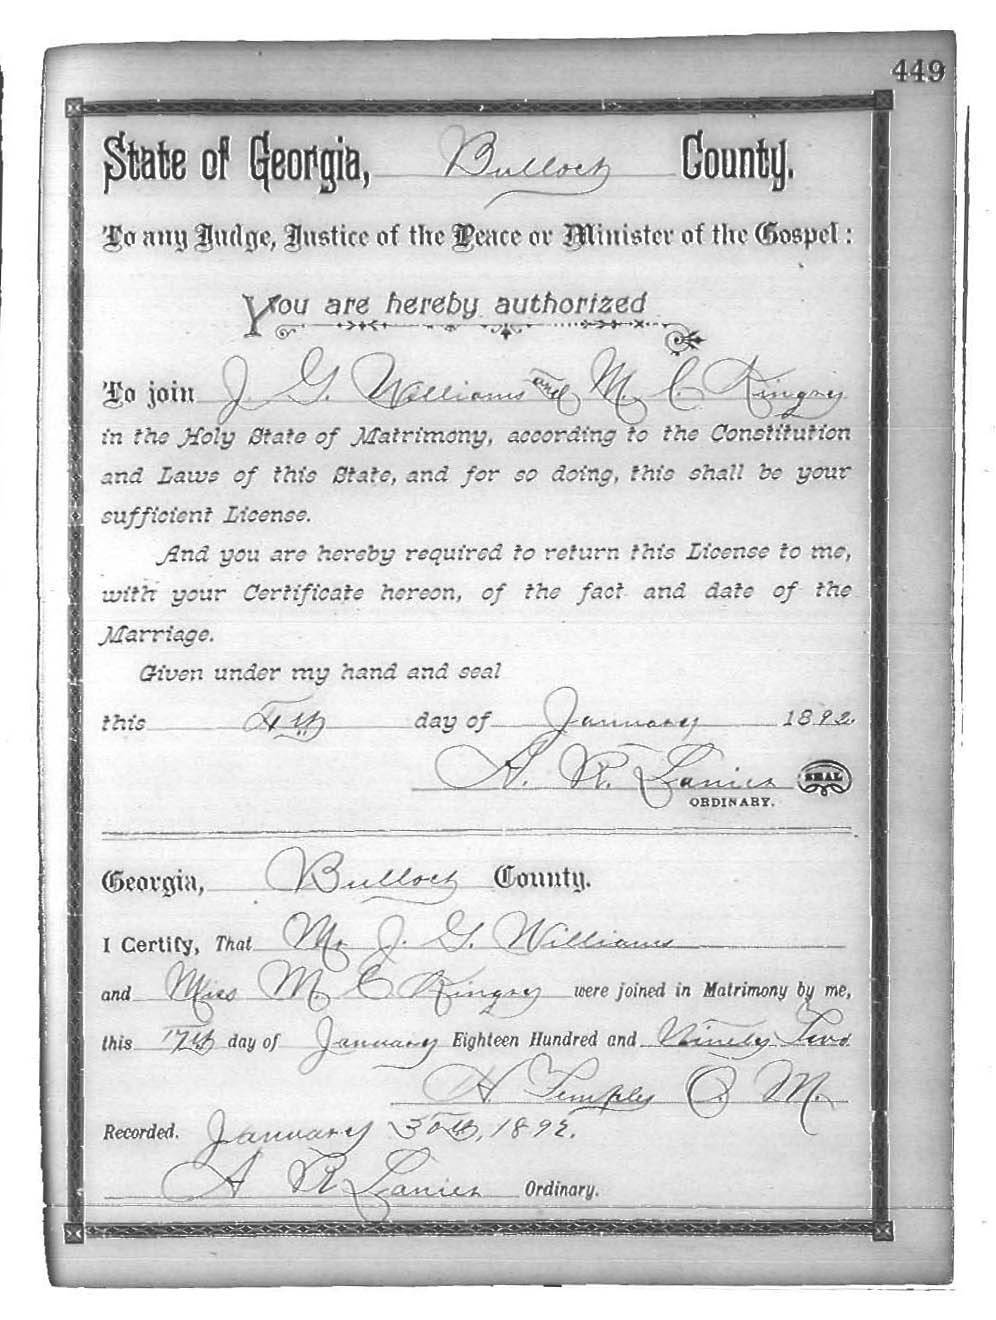 449
State of Georgia, Bulloch County.
To any Judge, Justice of the Peace or Minister of the Gospel:
You are hereby authorized
To join J. G. Williams and M. C. Kingry
in the Holy State of Matrimony, according to the Constitution
and Laws of this State, and for so doing, this shall be your
sufficient License.
And you are hereby required to return this License to me,
with your Certificate hereon, of the fact and date of the
Marriage.
Given under my hand and seal
this 4th day of January 1892.
A. R. Lanier SEAL
ORDINARY.
Georgia, Bulloch County.
I Certify, That Mr J. G. Williams
and Miss M. C Kingry were joined in Matrimony by me,
this 7th day of January Eighteen Hundred and Ninety Two
Temples M.
Recorded. January 30th, 1892.
A R Lanier Ordinary.